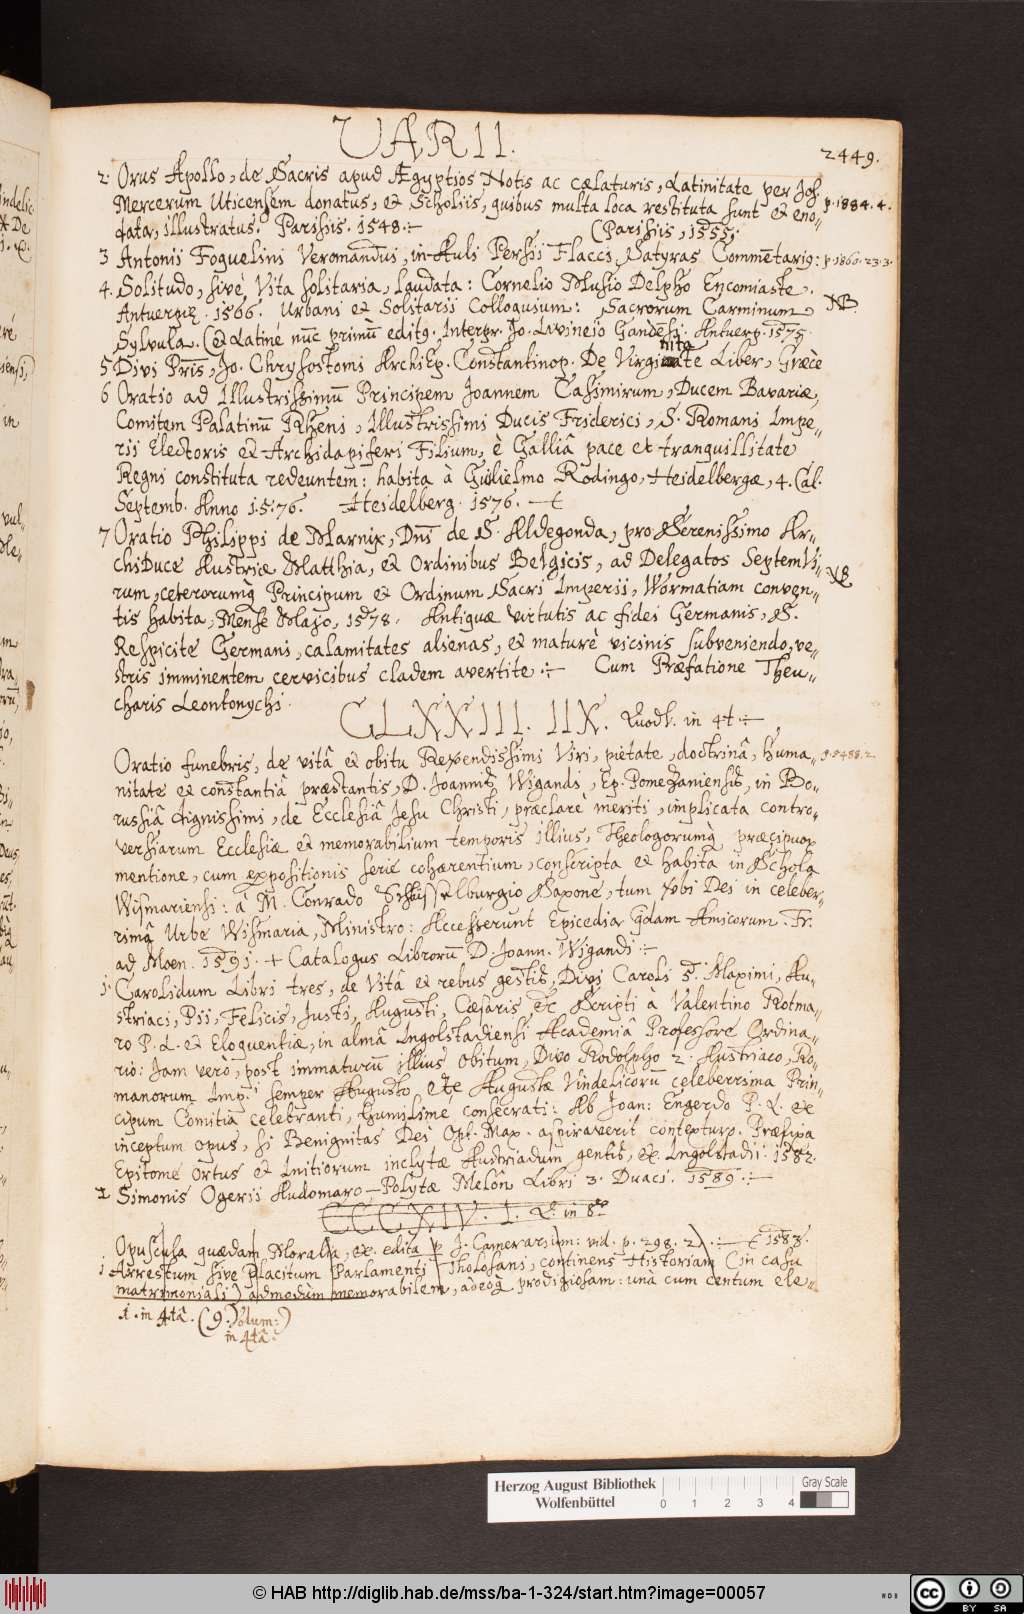 VARII.
2449.
2. Orus Apollo, de Sacris apud Ægyptios Notis ac cælaturis, Latinitate per Joh.
Mercerum Uticensem donatus, et Scholiis, quibus multa loca restituta sunt et eno- p. 1884. 4.
data, illustratus. Parisiis. 1548. (Parisiis, 1555.
3 Antonii Foquelini Veromandui, in Auli Persii Flacci Satyras Commentarig: p 1860. 23. 3.
4. Solitudo, sivè Vita solitaria, laudata: Cornelio Musio Delpho Encomiaste.
Antuerpiæ. 1566. Urbani et Solitarii Colloquium: Sacrorum Carminum NB.
Sylvula. (& Latinè nuc primũ editg. Interpr. Jo. Lavineio Gandesi. Antuerp. 1575.
5 Divi Pris, Jo. Chrysostomi ArchiEp. Constantinop. De Virginitate Liber, Græcè
6 Oratio ad Illustrissimũ Principem Joannem Casimirum, Ducem Bavariæ,
Comitem Palatinũ Rheni, Illustrissimi Ducis Friderici, S. Romani Impe-
rii Electoris et Archidapiferi Filium, è Galliâ pace et tranquillitate
Regni constituta redeuntem: habita à Gulielmo Rodingo, Heidelbergæ, 4. Cal.
Septemb. Anno 1576. Heidelberg. 1576.
7 Oratio Philippi de Marnix, Dni de S. Aldegonda, pro Serenissimo Ar-
chiDuce Austriæ Matthia, et Ordinibus Belgicis, ad Delegatos SeptemVi-
rum, ceterorumq Principum et Ordinum Sacri Imperii, Wormatiam conven- NB
tis habita, Mense Majo, 1578. Antiquæ virtutis ac fidei Germanis, S.
Respicite Germani, calamitates alienas, et maturè vicinis subveniendo, ve-
stris imminentem cervicibus cladem avertite. Cum Præfatione Theu-
charis Leontonychi.
CLXXIII. IIX. Quodl. in 4t
Oratio funebris, de vitâ et obitu Reverendissimi Viri, pietate, doctrinâ, huma- p. 5488. 2.
nitate et constantiâ præstantis, D. Joannis Wigandi, Ep. Pomezaniensis, in Bo-
russiâ dignissimi, de Ecclesiâ Jesu Christi, præclarè meriti, implicata contro-
versiarum Ecclesiæ et memorabilium temporis illius, Theologorumq præcipuor
mentione, cum expositionis serie cohærentium, conscripta et habita in Schola
Wismariensi: à M. Conrado Schlüsselburgio Saxone, tum verbi Dei in celeber-
rimâ Urbe Wismaria, Ministro: Accesserunt Epicedia qdam Amicorum. Fr.
ad Moen. 1591. + Catalogus Librorũ D. Joann. Wigandi
1. Carolidum Libri tres, de Vitâ et rebus gestis, Divi Caroli 5. Maximi, Au-
striaci, Pii, Felicis, Justi, Augusti, Cæsaris, &c Scripti à Valentino Rotma-
ro P. L. et Eloquentiæ, in almâ Ingolstadiensi Academiâ Professore Ordina-
rio: Jam verò, post immaturũ illius obitum, Divo Rodolpho 2. Austriaco, Ro-
manorum Imp. semper Augusto, etc Augustæ Vindelicorũ celeberrima Prin-
cipum Comitia celebranti, humilime consecrati: Ab Joan: Engerdo P. L. ex
inceptum opus, si Benignitas Dei Opt. Max. aspiraverit contexturo. Præfixa
Epitome Ortus et Initiorum inclytæ Austriadum gentis, ex. Ingolstadii. 1582.
2 Simonis Ogerii Audomaro-Politæ Melôn Libri 3. Duaci. 1589.
CCCXIV. 1. Q. in 8vo
Opuscula quædam Moralia, ex. edita p J. Camerarium: vid. p. 298. 2. 1583.
1 Arrestum sive placitum Parlamenti Tholosani, continens Historiam (in casu
matrimoniali) admodùm memorabilem, adeoq prodigiosam: unà cum centum ele-
1. in 4tâ. (9. Volum:)
in 4tâ.
Herzog August Bibliothek
Wolfenbüttel
0 1 2 3 4
Gray Scale
© HAB http://diglib.hab.de/mss/ba-1-324/start.htm?image=00057
cc BY SA